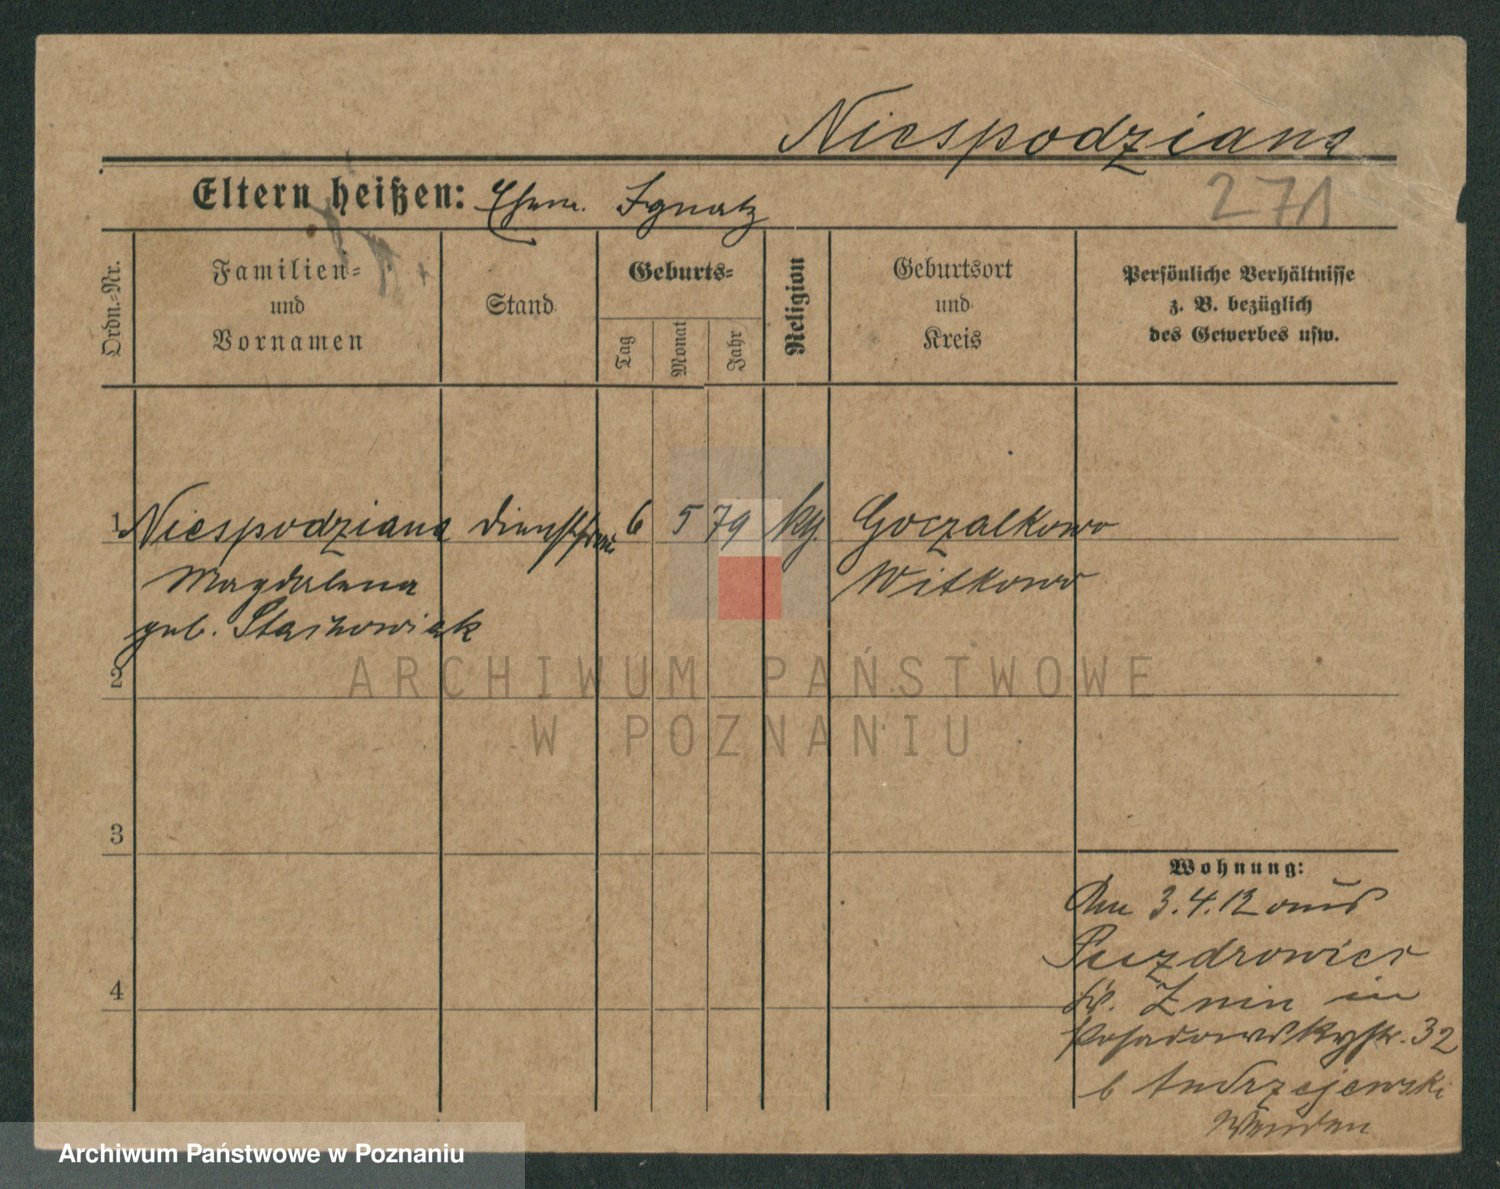 Niespodziana
Eltern heißen: Ehem. Ignatz
271
Ordn.=Nr.
Familien=
und
Vornamen
Stand
Geburts=
Tag
Monat
Jahr
Religion
Geburtsort
und
Kreis
Persönliche Verhältnisse
z. B. bezüglich
des Gewerbes usw.
1 Niespodziana Dienstfrau 6 5 79 kg. Goczalkowo
Magdalena Witkowo
geb. Stachowiak
2
3
4
Wohnung:
Am 3.4.12 aus
Puzdrowiec
Kr. Znin in
Posadowskystr. 32
b Andrzejewski
ARCHIWUM PAŃSTWOWE
W POZNANIU
Archiwum Państwowe w Poznaniu